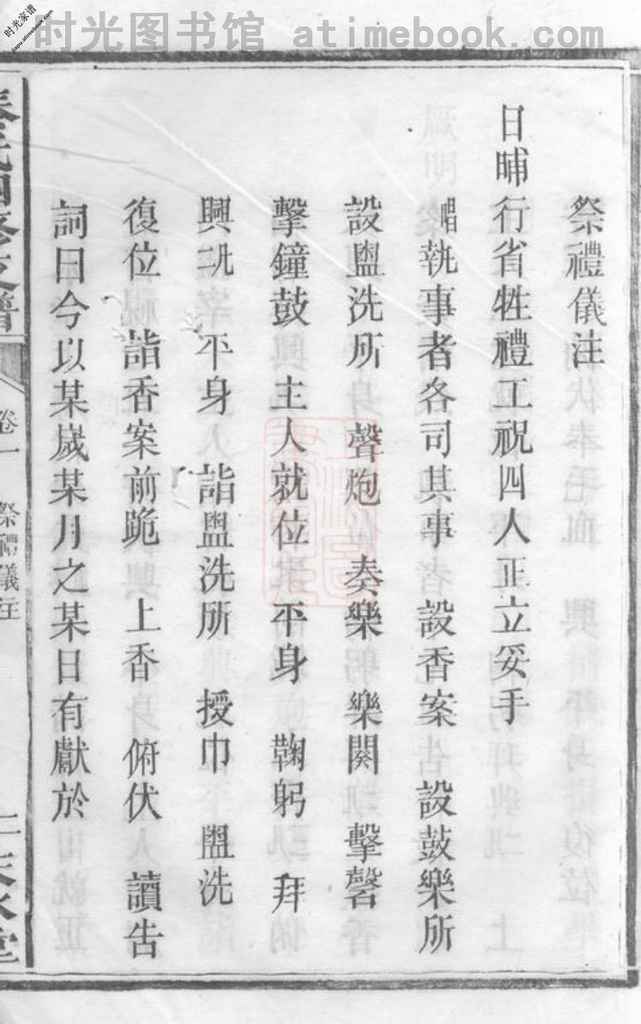 时光图书馆 atimebook.com
时光家谱
祭禮儀注
日晡行省牲禮工祝四人正立妥手
唱執事者各司其事 設香案 設鼓樂所
設盥洗所 聲炮 奏樂 樂闋 擊磬
擊鐘鼓 主人就位 平身 鞠躬 拜
興 平身 詣盥洗所 授巾 盥洗
復位 詣香案前跪 上香 俯伏 讀告
詞曰今以某歲某月之某日有獻於
氏四修支譜
卷一 祭禮儀注